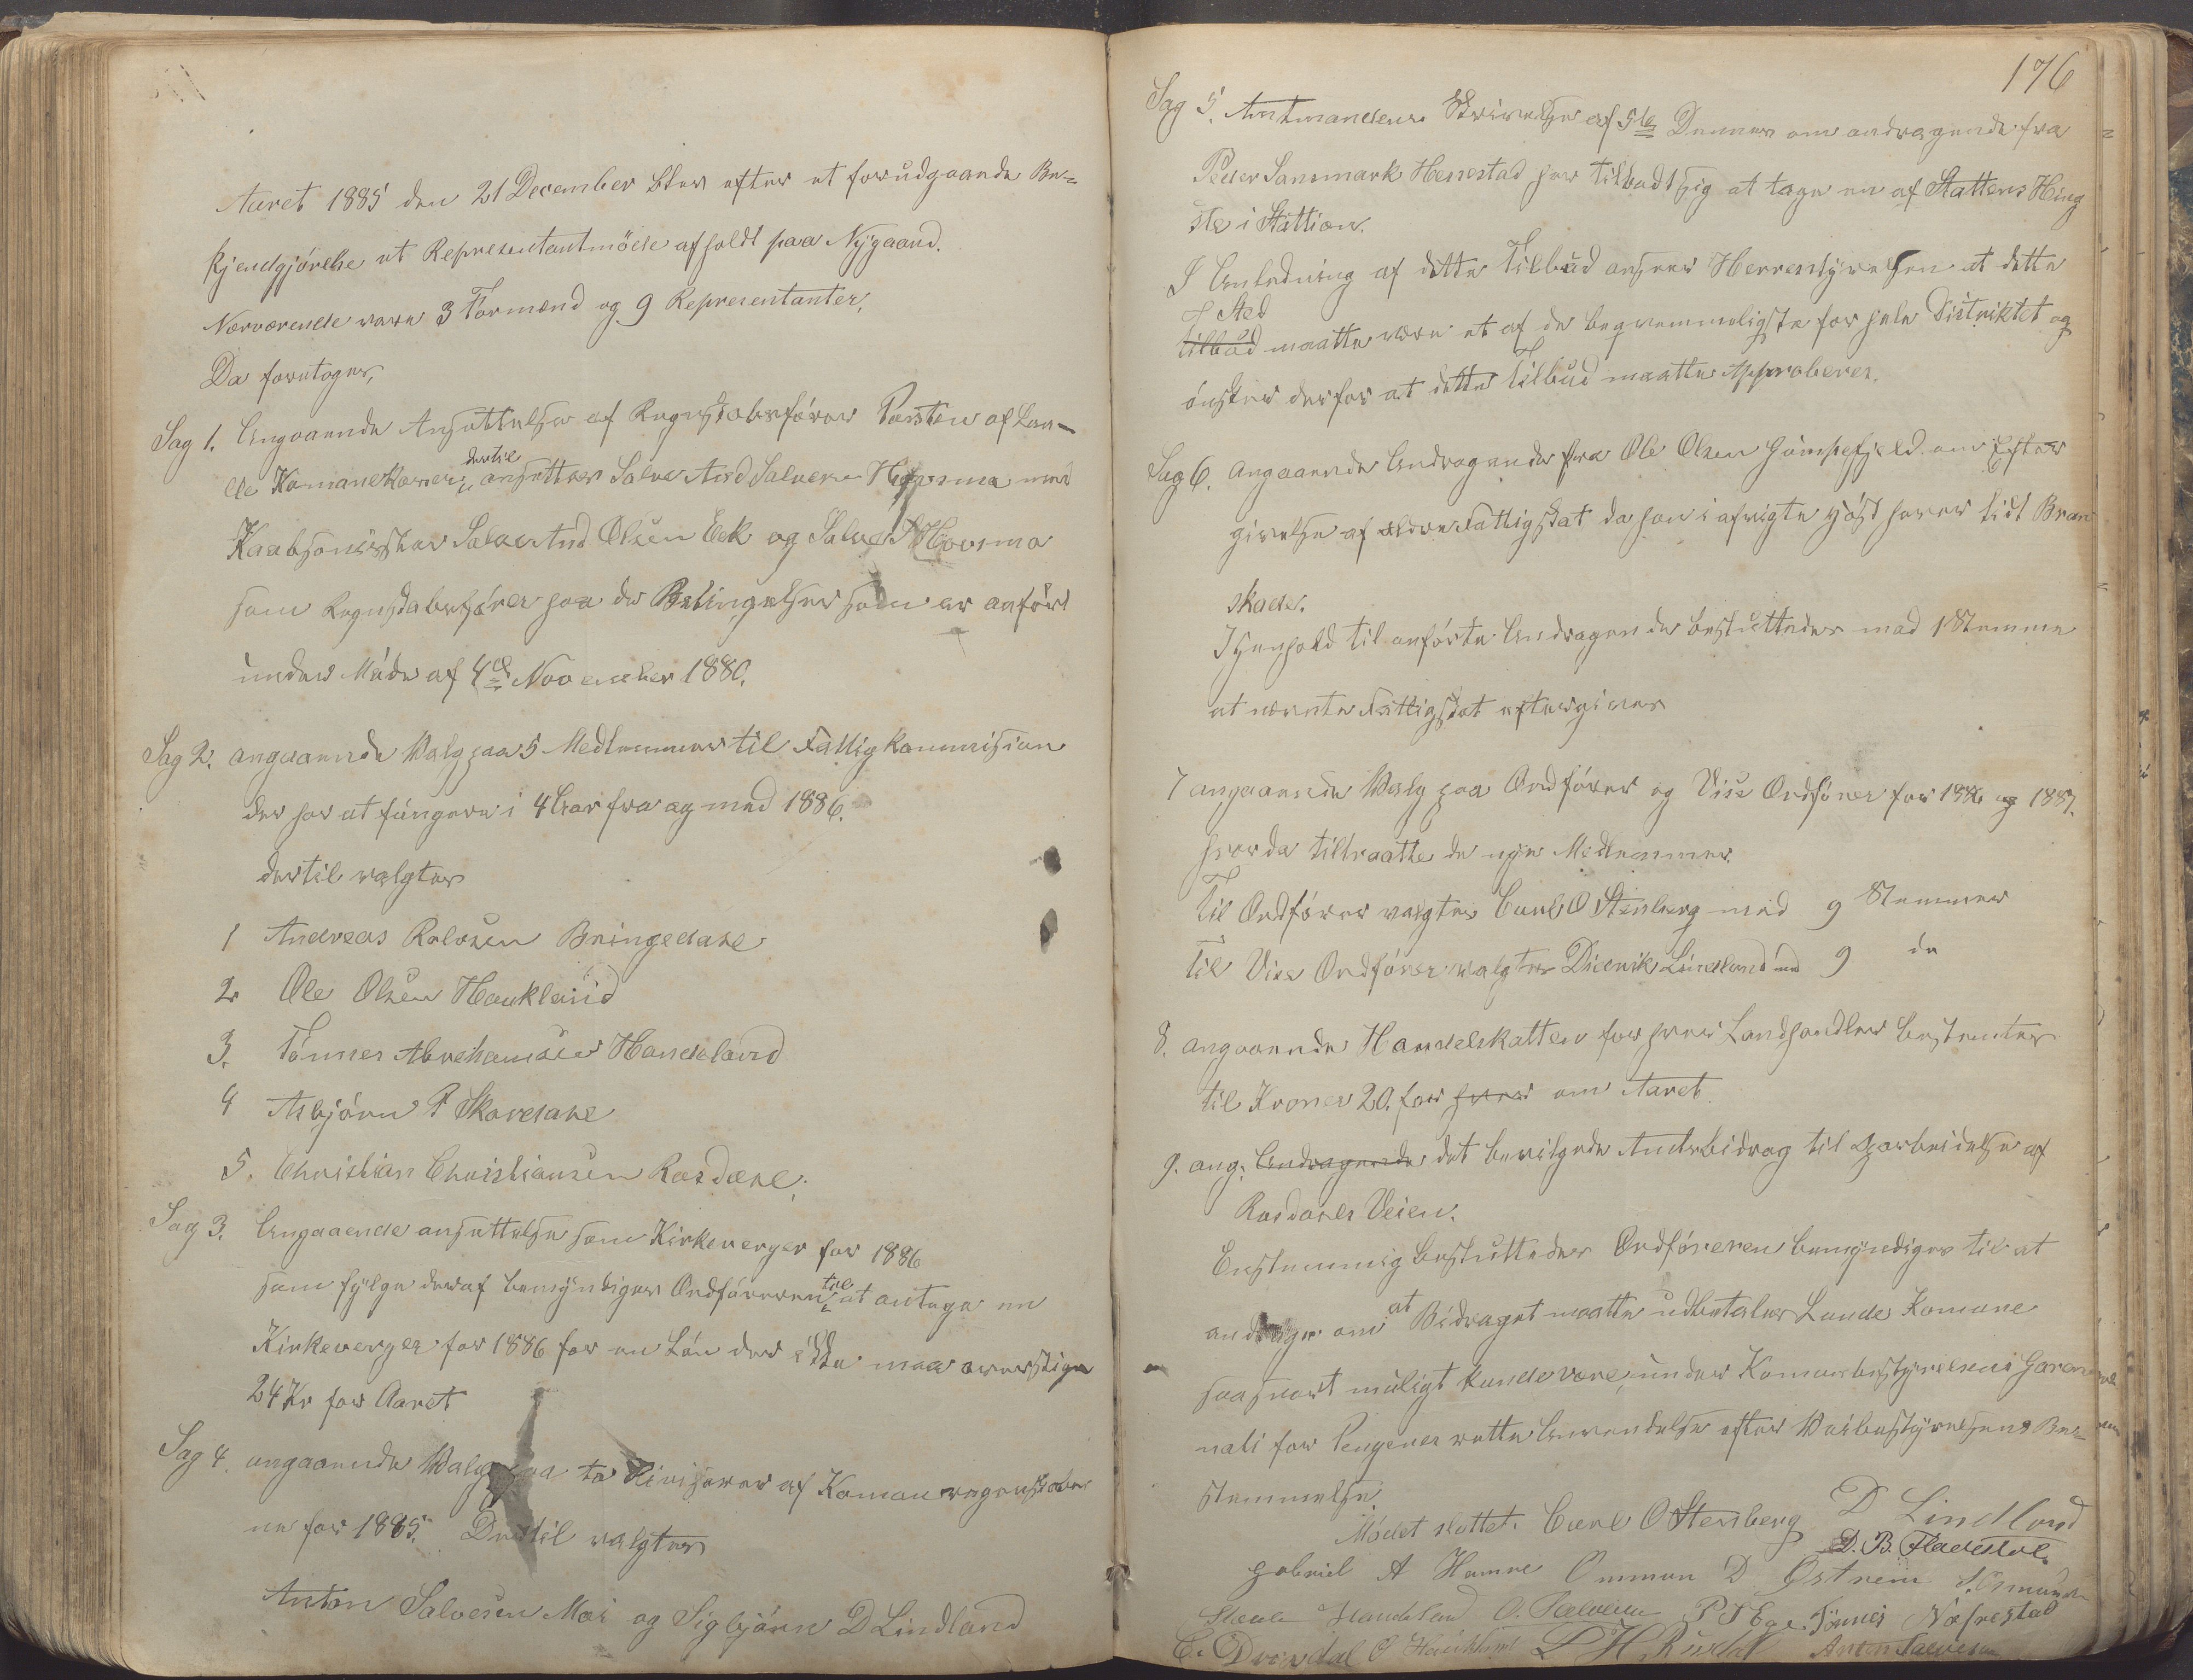 Aaret 1885 den 21 December blev efter et forudgaaende Be-
kjendgjørelse et Representantmöde afholdt paa Nÿgaard.
Nærværende vare 3 Formænd og 9 Representanter,
Da foretoges,
Sag 1. Angaaende Ansættelse af Regnskabsfører Posten af Lun-
de Komunekasser, dertil ansættes Salve And Salvesen med
Kaabsonister Salve And Olsen Eek og Salve
som Regnskabsfører paa de Betingelser som er anført
under Møde af 4de November 1880.
Sag 2. angaaende Valg paa 5 Medlemmer til Fattigkommision
der har at fungere i 4 Aar fra og med 1886.
dertil valgtes
1 Andreas Rolvsen Bringedahl
2 Ole Olsen Haukland
3. Tönnes Abrahamsen Handeland
4 Asbjörn P Skaredahl
5. Christian Christiansen Rosdahl;
Sag 3. Angaaende ansættelse som Kirkeverger for 1886
som følge deraf bemÿndiges Ordføreren til at antage en
Kirkeverger for 1886 for en Løn der ikke maa overstige
24 Kr for Aaret
Sag 4. angaaende Valg paa to Revisorer af Komuneregnskaber
ne for 1885. Dertil valgtes
Anton Salvesen Moi og Sigbjörn D Lindland
176
Sag 5. Amtmandens Skrivelse af 5te Dennes om andragende fra
Peder Sansmark Hestestad har tilbudt sig at tage en af Stattens Hing
ste i Stattion.
I Anledning af dette Tilbud anseer Herrestÿrelsen at dette
Sted
tilbud maatte være et af de beqvemmeligste for hele Distriktet og
ønsker derfor at dette Tilbud maatte Approberes.
Sag 6. Angaaende Andragende fra Ole Olsen Gumpefjeld om Efter
givelse af ældre Fattigskat da han i afvigte Høst haver lidt Bran
skade.
I Henhold til anførte Andragende besluttedes med 1 Stemme
at nævnte Fattigskat eftergives
7 angaaende Valg paa Ordfører og Vise Ordfører for 1886 og 1887.
hvorda tiltraatte de nye Medlemmer
Til Ordfører valgtes Carl O Stenberg med 9 Stemmer
Til Vise Ordfører valgtes Didrik Lindland med 9 do
8. angaaende Handelskatten for hver Landhandler bestemtes
til Kroner 20. for hver om Aaret.
9. ang. Andragende det bevilgede Amtsbidrag til Oparbeidelse af
Rosdahls Veien.
Enstemmig besluttedes Ordføreren bemÿndiges til at
andrage om at Bidraget maatte udbetales Lunde Komune
saasnart muligt kunde være, under Komunebestyrelsens Garan
nati for Pengenes rette Anvendelse efter Veibestÿrelsens Be-
stemmelse.
Mödet sluttet. Carl O Stenberg D Lindland
D. B. Fladstøl.
Gabriel A Hamre Ommun D Östreim S. Omund
Handeland O. Salvesen P T Ege. Tönnes Næfrestad
O Haukland Anton Salvesen